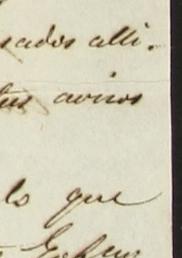 sados alli.
tus avisos
lo que